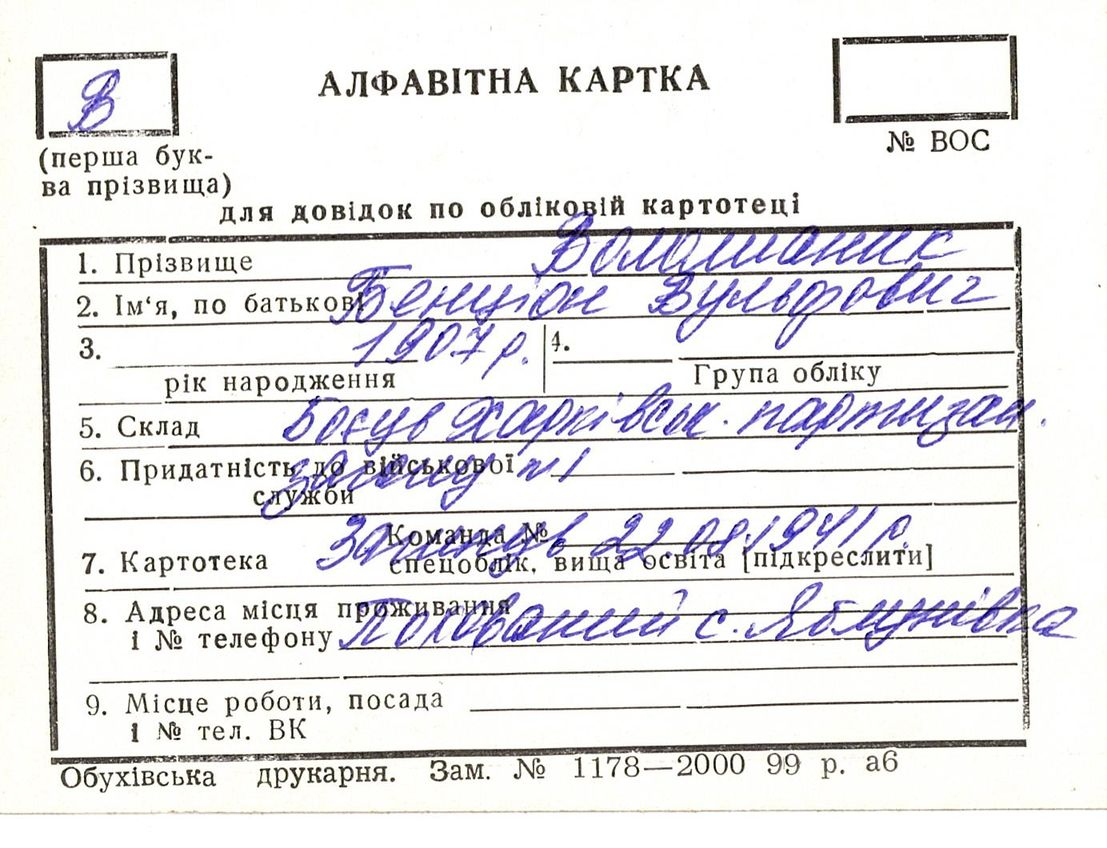 В
АЛФАВІТНА КАРТКА
(перша бук-
ва прізвища)
№ ВОС
для довідок по обліковій картотеці
1. Прізвище Волошаник
2. Ім‘я, по батькові Бенціон Вульфович
3. 1907 р. 4.
рік народження Група обліку
5. Склад Боєць Харківськ. партизан.
6. Придатність до військової загону №1
служби
Команда №
7. Картотека Загинув 22.08.1941 р.
спецоблік. вища освіта [підкреслити]
8. Адреса місця проживання
і № телефону Похований с. Яблунівка
9. Місце роботи, посада
і № тел. ВК
Обухівська друкарня. Зам. № 1178—2000 99 р. а6